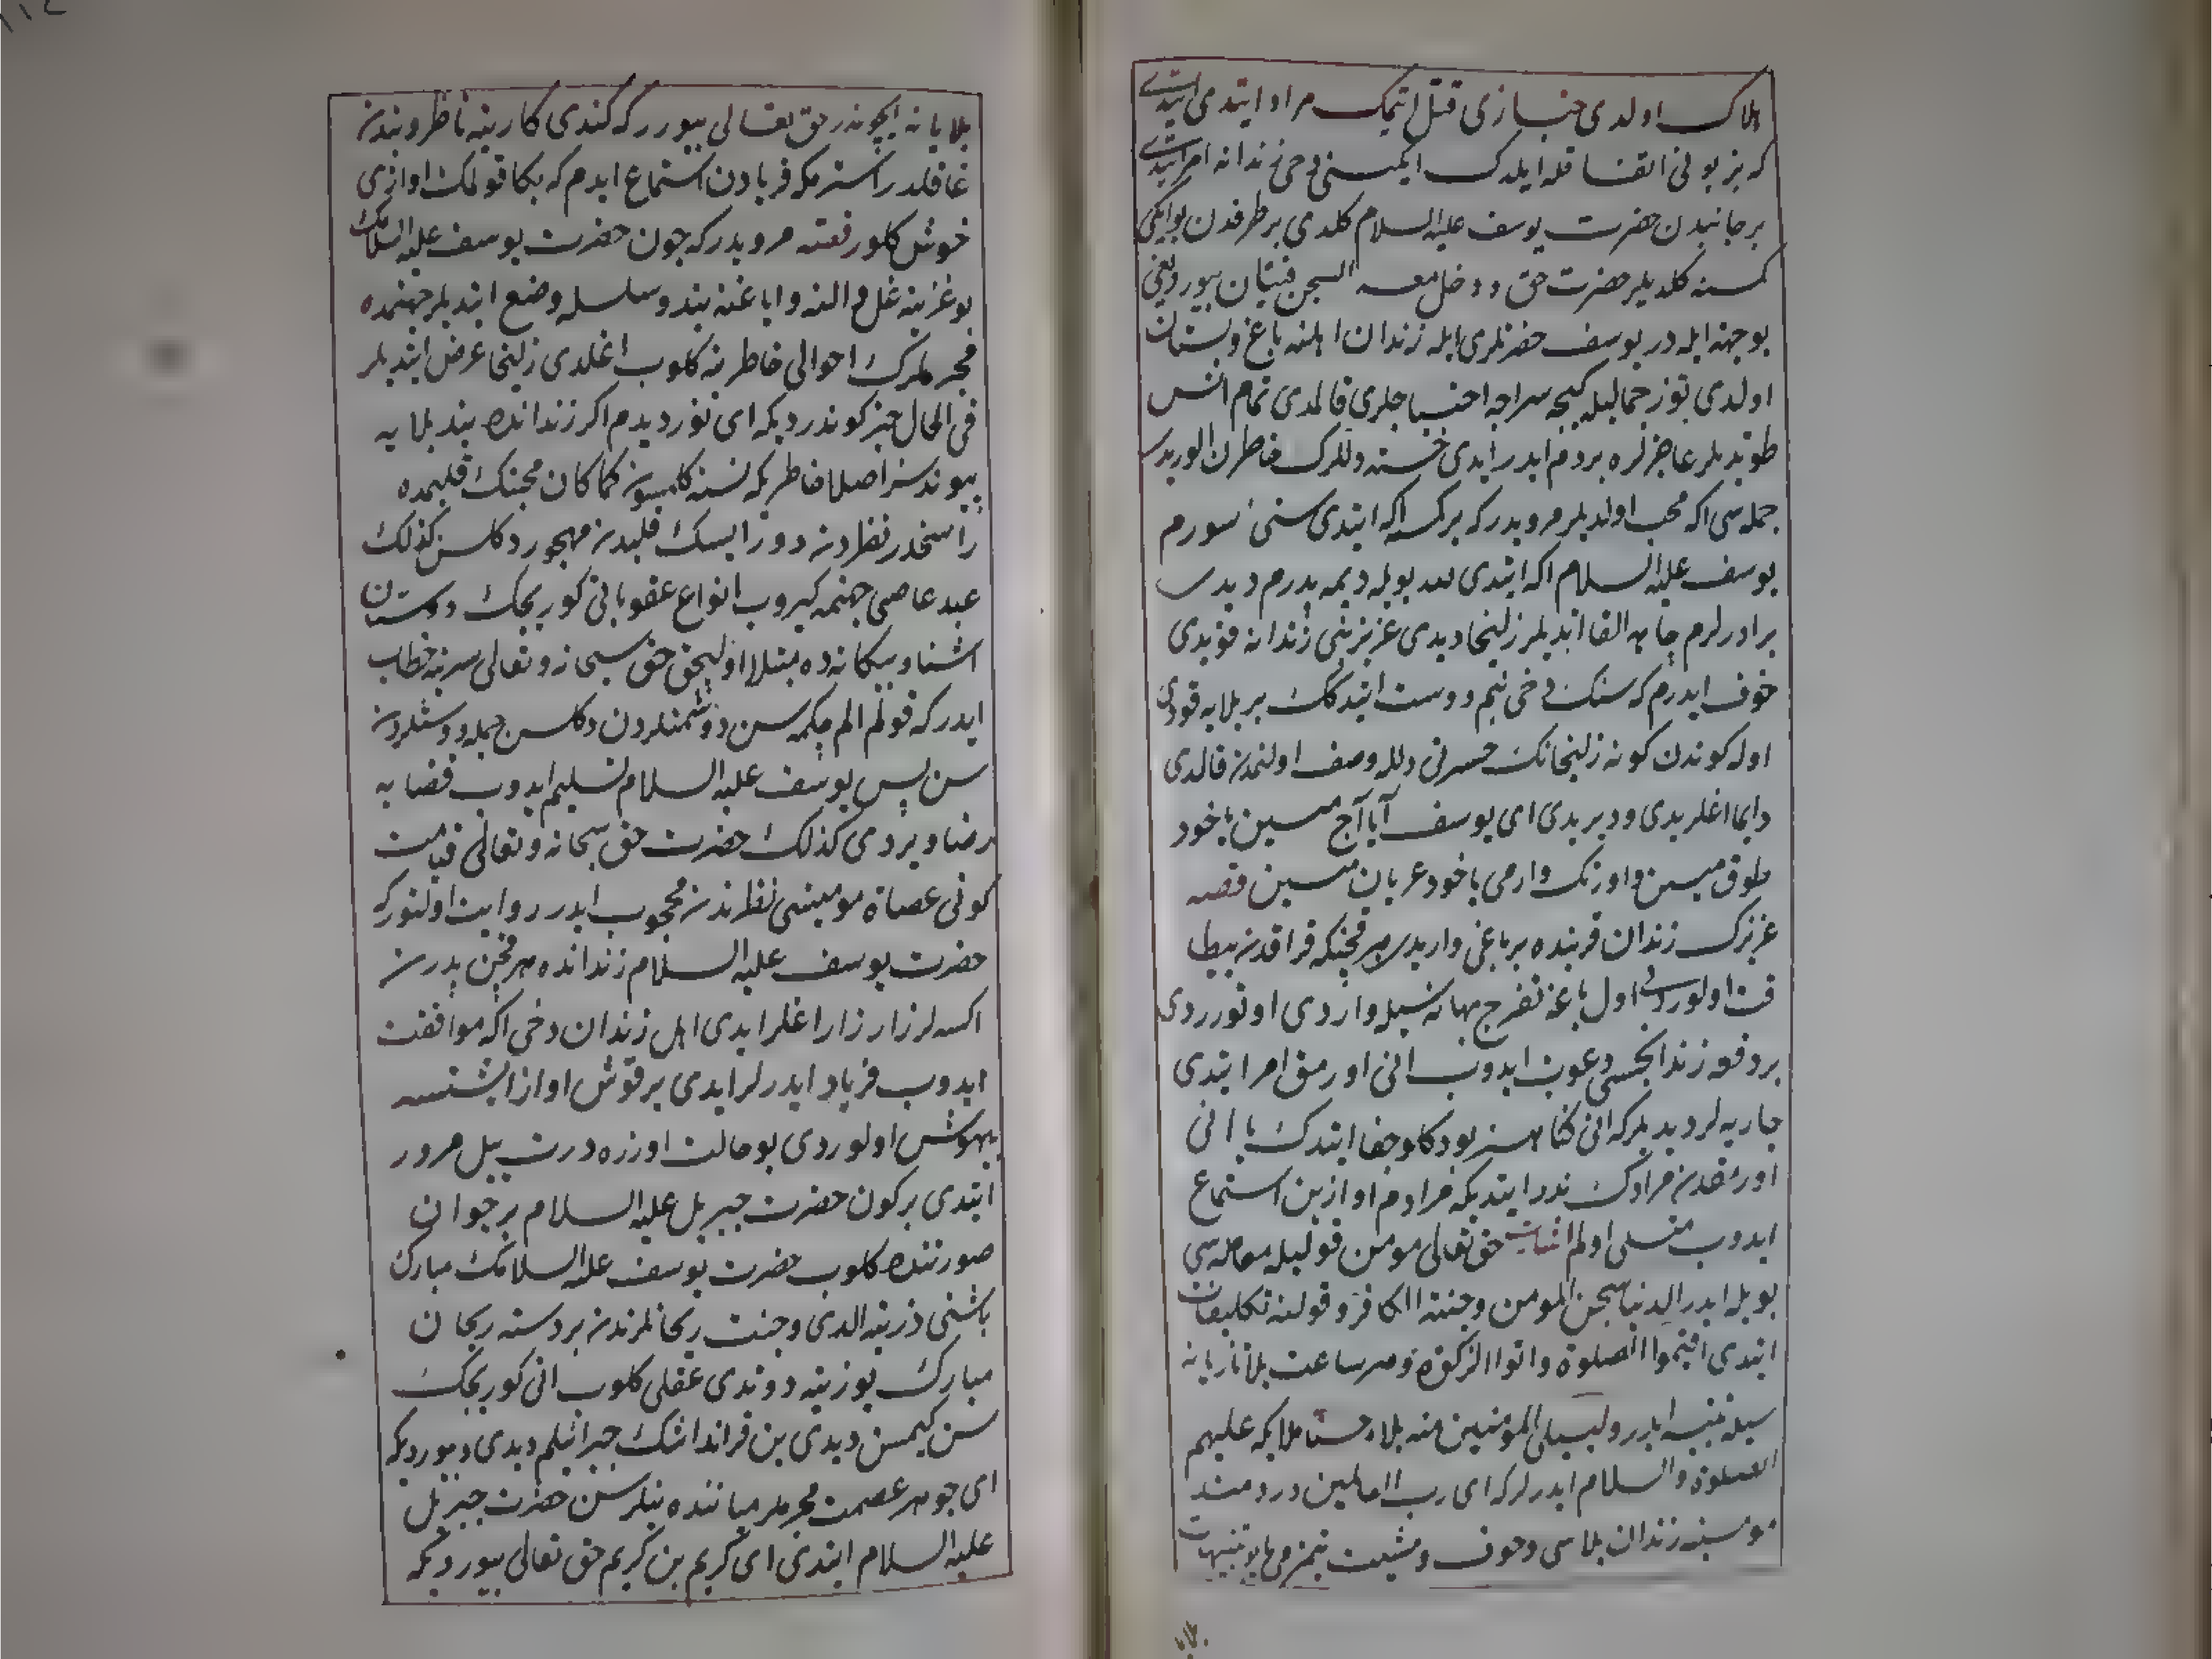 هلاك اولدی خبازی قتل اتمك مراد ایتدی ایتدی
كه بز بونی اتفاقله ایلدك ایكیسنی دخی زندانه امر ایتدی
بر جانبدن حضرت یوسف علیه السلام كلدی بر طرفدن بو ایكی
كمسنه كلدیلر حضرت حق ودخل معه السجن فتیان بیوردی یعنی
بو جهت ایله در یوسف حضرتلری ایله زندان اهلنه باغ وبستان
اولدی یوز جمالیله كیجه سراجه احتیاجلری قالمدی تمام انس
طوتدیلر عاجزلره یردم ایدر ایدی خسته دللرك خاطرن الوردی
جمله سی اكه محب اولدیلر مرویدر كه بر كمسه اكه ایتدی سنی سورم
یوسف علیه السلام اكه ایتدی بویله دیمه پدرم دیدی
برادرلرم چاهه القا اتدیلر زلیخا دیدی عزیز بنی زندانه قویدی
خوف ایدرم كه سنك دخی بنم دوست ایتدكك بر بلایه قودی
اوله كوندن كونه زلیخانك حسرتی دلله وصف اولنمز قالدی
دایما اغلریدی ودیریدی ای یوسف آیا آج مسین یاخود
طوق میسن واورتك وارمی یاخود عریان مسین قصه
عزیزك زندان قربنده بر باغی واریدی هر قچنكه فراقدن بیطا
قت اولوردی اول باغه تفرج بهانه سیله واردی اوتوردی
بر دفعه زندانجیسی دعوت ایدوب انی اورمق امر ایتدی
جاریه لر دیدیلر كه انی كناهسز بو دكلو جفا ایتدك یا انی
اورمقدن مرادك ندر ایتدیكه مرادم اوازین استماع
ایدوب متسلی اولم اشارت حق تعالی مومن قولیله معامله سی
بویله ایدر الدنیا سجن المومن وجنة الكافر وقولنه تكلیفات
ایتدی اقیموا الصلوة واتوا الزكوة وهر ساعت بلا تازیانه
سیله تنبیه ایدر ولیبلی المومنین منه بلاء حسنا ملایكه علیهم
الصلوة والسلام ایدرلر كه ای رب العالمین دردمند
مومسنه زندان بلاسی وخوف ومشیت یتمزمی یا بو تنبیهات
بلا یا نه ایچوندر حق تعالی بیورر كه كندی كارینه ناظر وبندن
غافلدر استرمكه فریادن استماع ایدم كه بكا قولمك اوازی
خوش كلور قصه مرویدر كه چون حضرت یوسف علیه السلامك
بوغزینه غل والنه وایاغنه بند وسلسله وضع ایتدیلر جهنمده
مجرملرك احوالی خاطرینه كلوب اغلدی زلیخا عرض ایتدیلر
فی الحال خبر كوندردیكه ای نور دیدم اكر زندانده بند بلایه
پیوندسز اصلا خاطریكه نسنه كلمسون كماكان محبتك قلبمده
راسخدر نظردن دور ایسك قلبدن مهجور دكلسن كذلك
عبد عاصی جهنمه كیروب انواع عقوباتی كوریجك دوستان
اشنا وبیكانه ده مبتلا اولیجق حق سبحانه وتعالی سرینه خطاب
ایدر كه قولم الم چكمه سن دوشمنلردن دكلسن جمله دوستلردن
سن پس یوسف علیه السلام تسلیم ایدوب قضایه
رضا ویردی كذلك حضرت حق سبحانه وتعالی قیامت
كونی عصاة مومینی نظرندن محجوب ایدر روایت اولنور كه
حضرت یوسف علیه السلام زندانده هر قچن پدرین
اكسه لر زار زار اغلر ایدی اهل زندان دخی اكه موافقت
ایدوب فریاد ایدرلر ایدی بر قوش اواز ایشتسه
بیهوش اولوردی بو حالت اوزره درت ییل مرور
ایتدی بر كون حضرت جبریل علیه السلام بر جوان
صورتنده كلوب حضرت یوسف علیه السلامك مبارك
باشنی دزینه الدی وجنت ریحانلرندن بر دسته ریحان
مبارك یوزینه دوندی عقلی كلوب انی كوریجك
سن كیمسن دیدی بن قرنداشك جبرائیلم دیدی دیوردیكه
ای جوهر عصمت مجرملر میاننده نیلرسن حضرت جبریل
علیه السلام ایتدی ای كریم بن كریم حق تعالی بیوردیكه